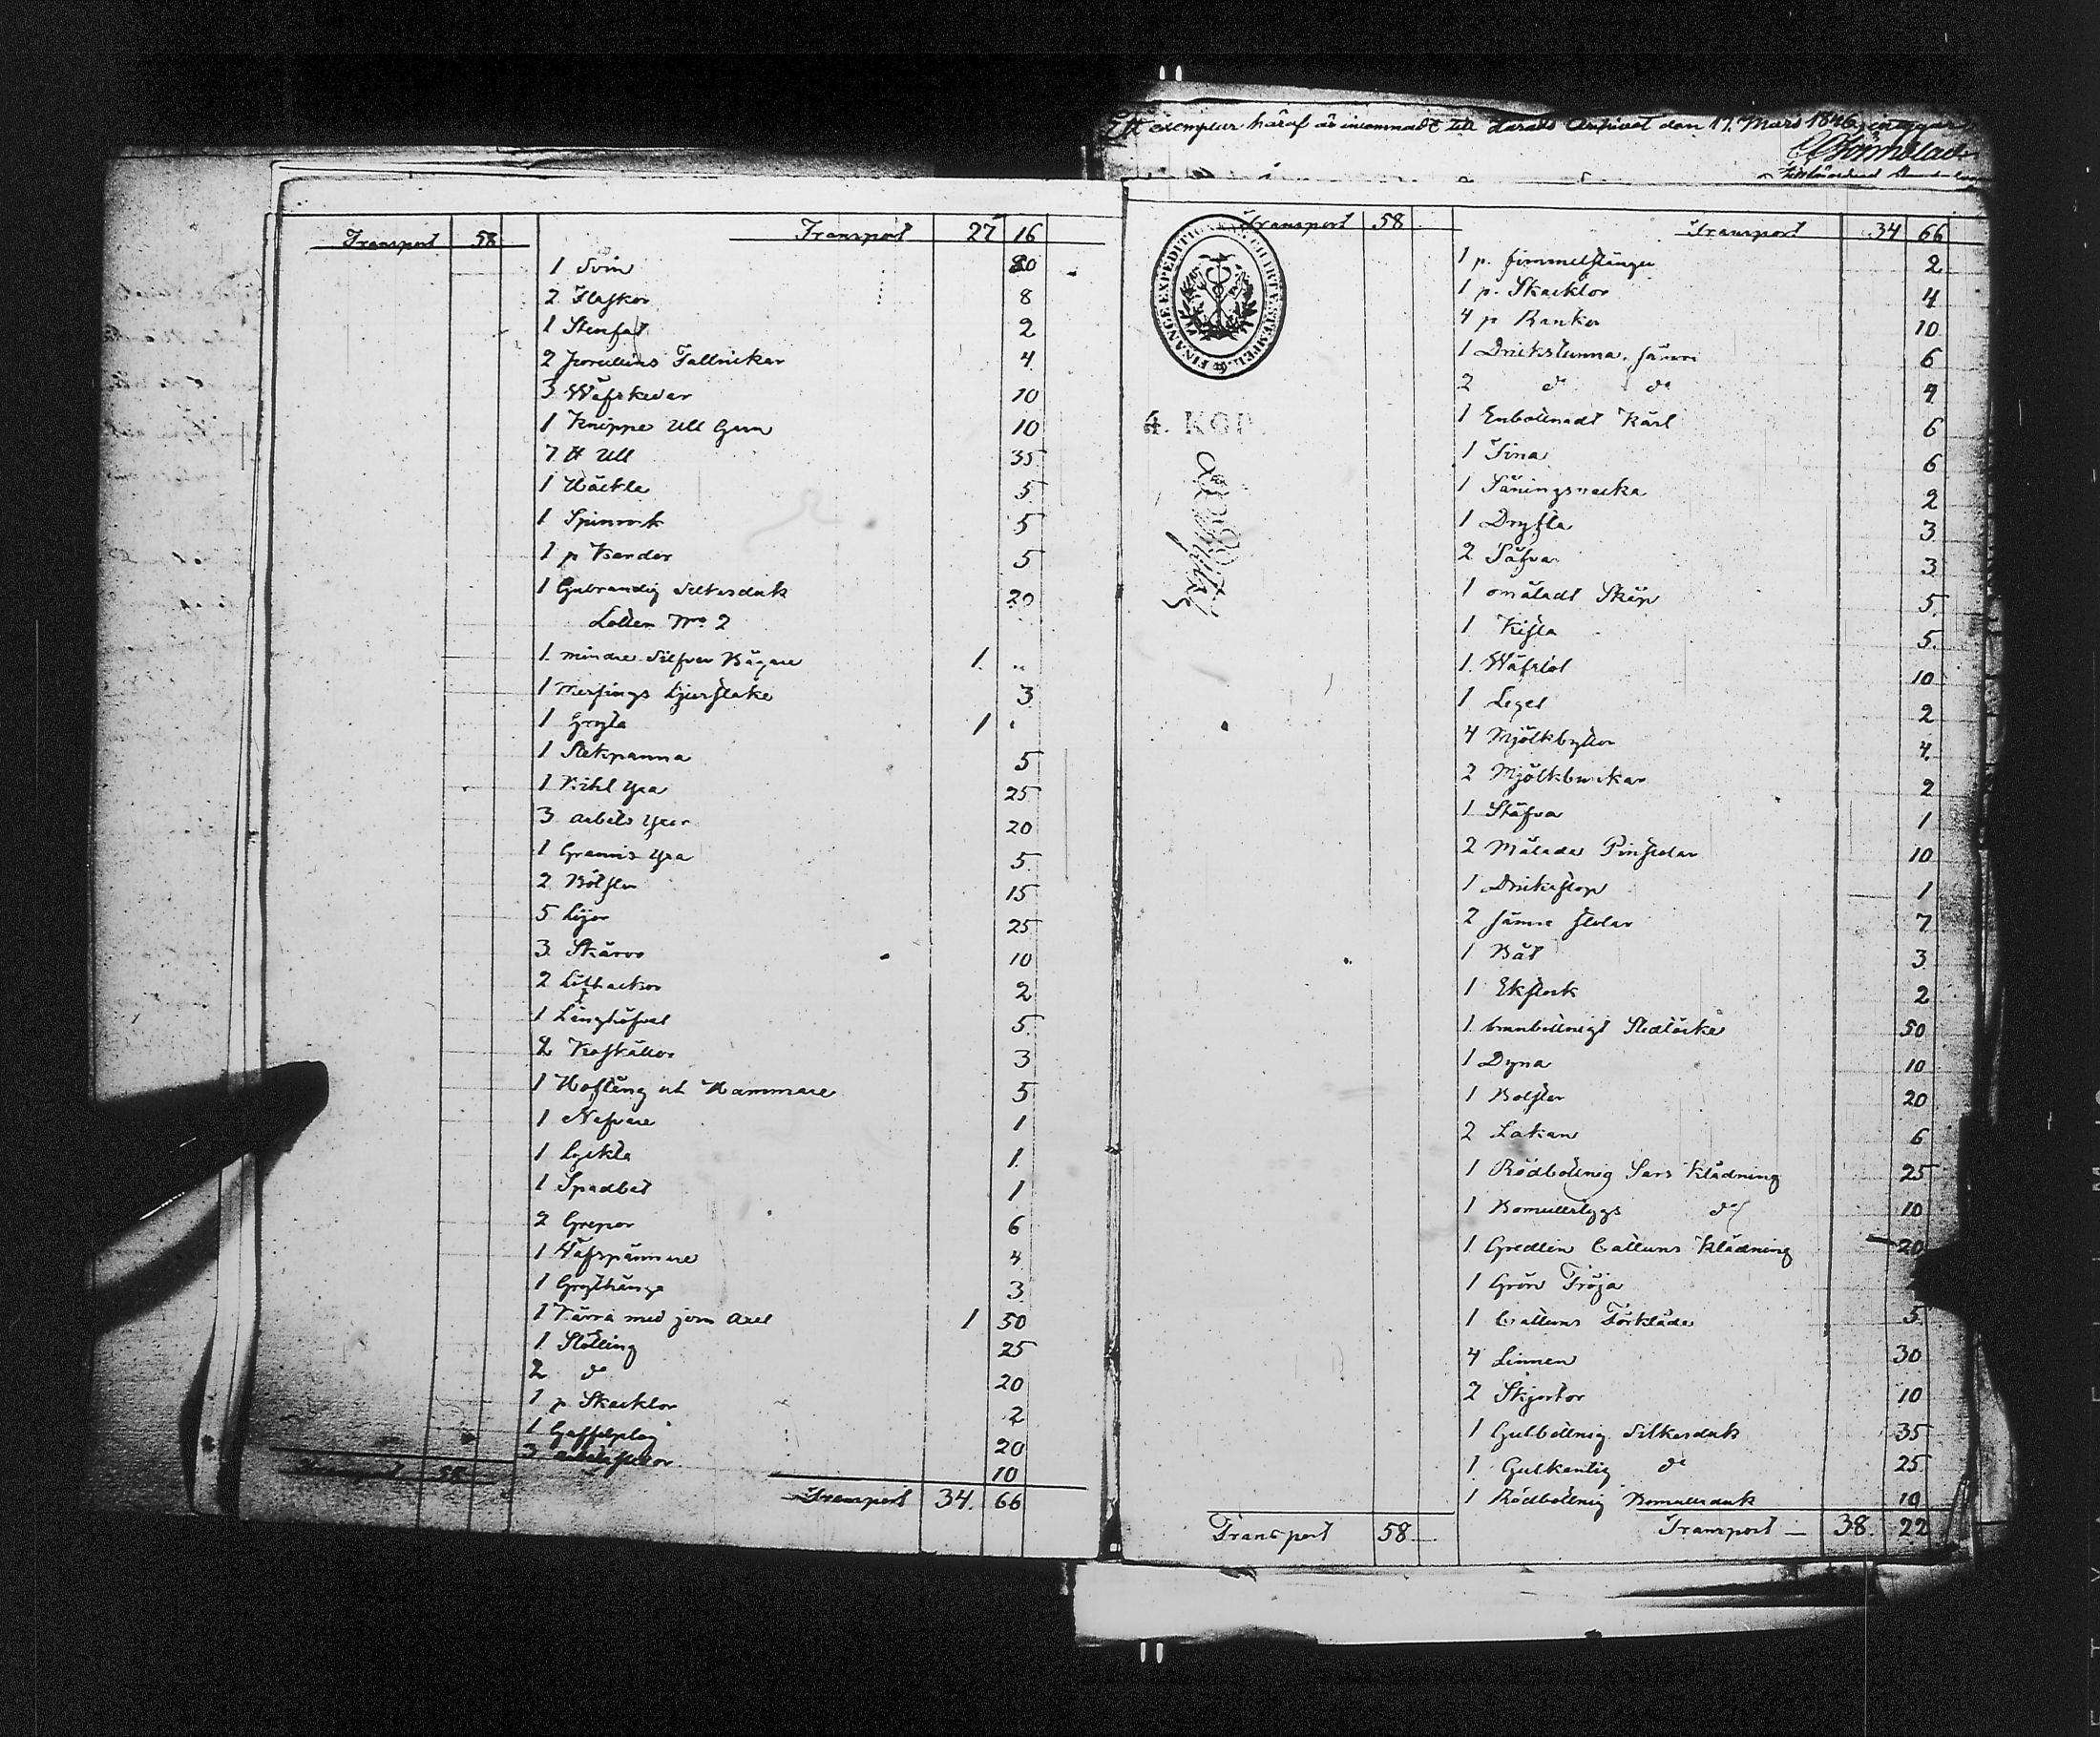 Ett exemplar häraf är inlemnadt till Härads Archivet den 17. Mars 1846, intygar
Transport 58 Transport 27 16
1 Svin 20
2 Flaskor 8
1 Stenfat 2
2 porcellins Tallrickar 4
3 Wäfskedar 10
1 Knippe Ull Garn 10
7 ℔ Ull 35
1 Häckla 5
1 Spinrock 5
1 p Kardor 5
1 Gulrandig Silkesduk 20
Lotten No 2
1 mindre Silfver Bägare 1 "
1 Messings Ljusstake 3
1 Gryta 1 "
1 Stekpanna 5
1 Bihl Yxa 25
3 arbets Yxor 20
1 Yxa 5
2 15
5 Lijor 25
3 Skäror 10
2 2
1 Långhöfvel 5
2 Koskällor 3
1 Hoftång och Hammare 5
1 Nafvare 1
1 Lyckta 1
1 1
2 Grepor 6
1 Wäfspännare 4
1 Grythänge 3
1 Kärra med jern Axel 1 50
1 Stötting 25
2 do 20
1 p Skacklor 2
1 Gaffelplog 20
3 10
Transport 58
Transport 34 66
Transport 58 Transport 34 66
FINANCE EXPEDITIONENS CHARTÆ STEMPEL
4. KOP.
1 p. fimmelstänger 2
1 p. Skacklor 4
4 p Bankar 10
1 Drickstunna sämre 6
2 do do 4
1 Enbottnadt Kärl 6
1 Tina 6
1 Såningsvacka 2
1 Drysla 3
2 Såfvar 3
1 omåladt Skåp 5
1 Kista 5
1 Wäfstol 10
1 Legel 2
4 Mjölkbyttor 4
2 Mjölkbunkar 2
1 Stäfva 1
2 Målade Pinstolar 10
1 Drickstop 1
2 sämre stolar 7
1 Båt 3
1 Ekstock 2
1 brunbottnigt Sledtäcke 50
1 Dyna 10
1 Bolster 20
2 Lakan 6
1 Rödbottnig Sars Klädning 25
1 Bomullstygs do 10
1 Gredlin Cattuns Klädning 20
1 Grön Tröja
1 Cattuns Förkläde 5
4 Linnen 30
2 Skjortor 10
1 Gulbottnig Silkesduk 35
1 Gulkantig do 25
1 Rödbottnig Bomullsduk 10
Transport 58 Transport 38 22